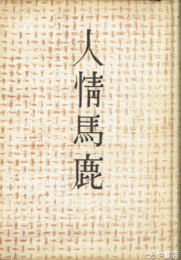 人情馬鹿